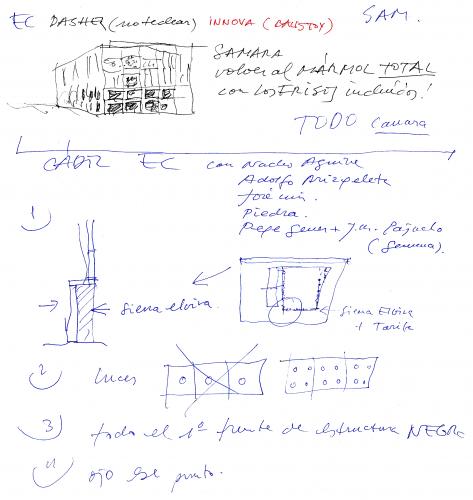 EC DASHER (no teclear) INNOVA (BALISTOX) SAM.
SAMARA
volver al MÁRMOL TOTAL
con los FRISOS incluidos!
TODO Camara
CADIZ EC con Nacho Aguirre
Adolfo Arizpeleta
José
Piedra.
Pepe + J.M. Pajuelo
1
Sierra elvira.
Sierra Elvira
+ Tarifa
2 luces
3) todo el 1º frente de estructura NEGRA
4) ojo ese punto.